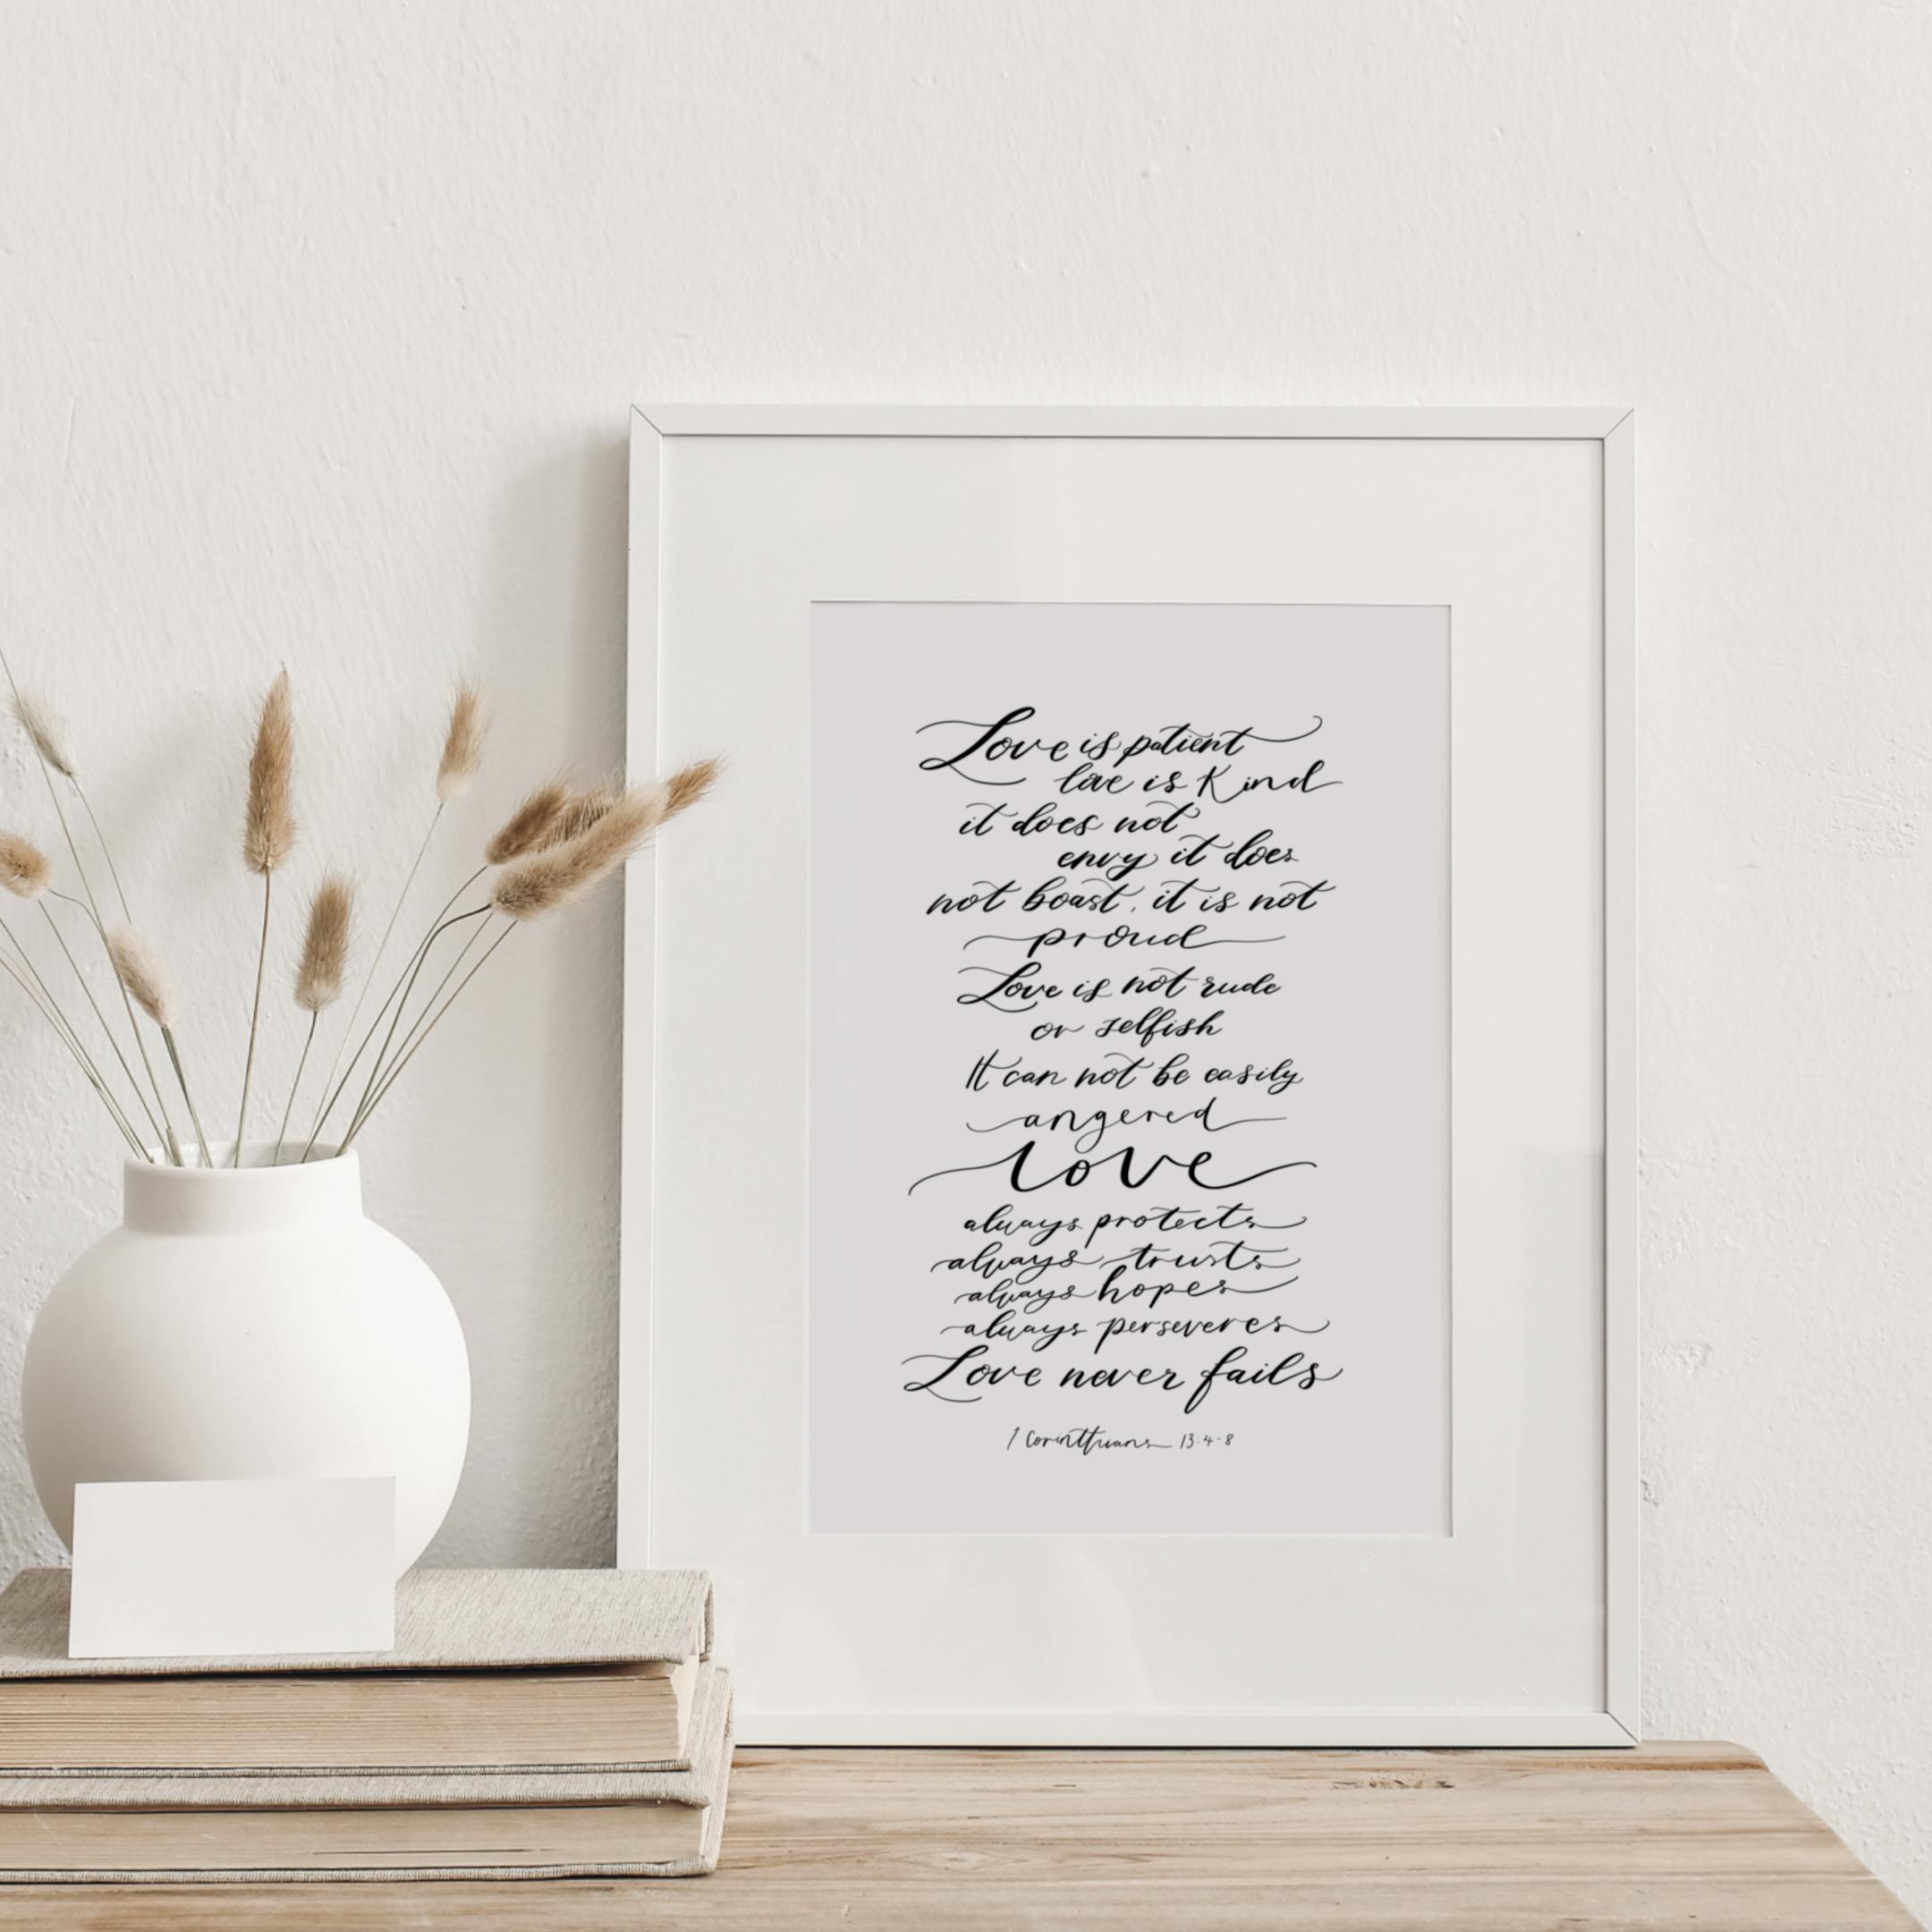 Love is patient
love is Kind
it does not
envy it does
not boast, it is not
proud
Love is not rude
or selfish
It can not be easily
angered
love
always protects
always trusts
always hopes
always perseveres
Love never fails
1 Corinthians 13.4-8